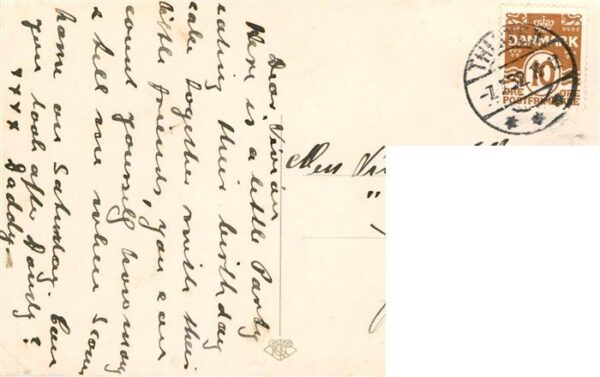 Dear Vivian
Here is a little Party
eating their birthday
cake together with their
little friends, you can
count yourself how many
& tell me when I come
home on Saturday. Can
you look after Dandy?
xxxx Daddy.
Miss
"
DANMARK
10
ØRE ØRE